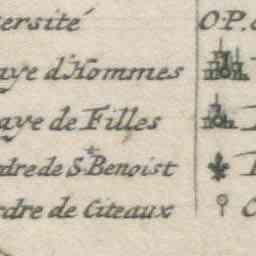 ersité O.P.
aye d'Hommes
aye de Filles
dre de St. Benoist
rdre de Citeaux